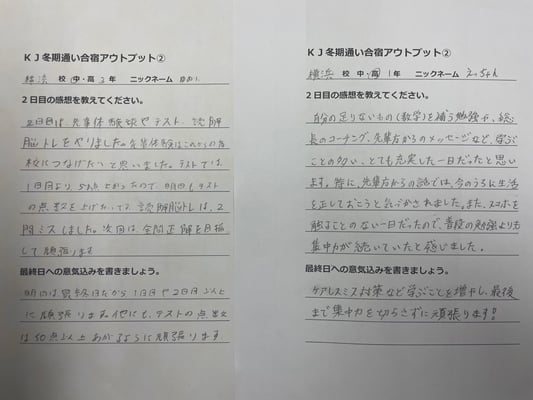 KJ冬期通い合宿アウトプット②
横浜 校 中・高 2年 ニックネーム
2日目の感想を教えてください。
2日目は、先輩体験談やテスト、読解
脳トレをやりました。先輩体験はこれからの高
校につなげたいと思いました。テストでは
1日目より、5点上がったので明日もテスト
の点数を上げたいです。読解脳トレは、2
問ミスしました。次回は、全問正解を目指
して頑張ります
最終日への意気込みを書きましょう。
明日は最終日だから1日目や2日目以上
に頑張ります。他にも、テストの点数
は10点以上あがるように頑張ります
KJ冬期通い合宿アウトプット②
横浜 校 中・高 1年 ニックネーム えっちゃん
2日目の感想を教えてください。
自分の足りないもの(数学)を補う勉強や、総
長のコーチング、先輩方からのメッセージなど、学ぶ
ことの多い、とても充実した一日だったと思い
ます。特に、先輩方からの話では、今のうちに生活
を正しておこうと気づかされました。また、スマホを
触ることのない一日だったので、普段の勉強よりも
集中力が続いていたと感じました。
最終日への意気込みを書きましょう。
ケアレスミス対策など学ぶことを増やし、最後
まで集中力を切らさずに頑張ります!